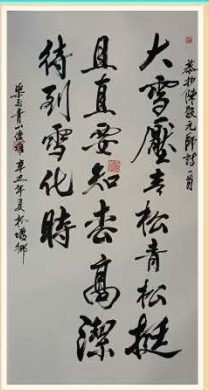 恭抄陈毅元帅诗一首
大雪壓青松青松挺
且直要知松高潔
待到雪化時
辛丑年夏於